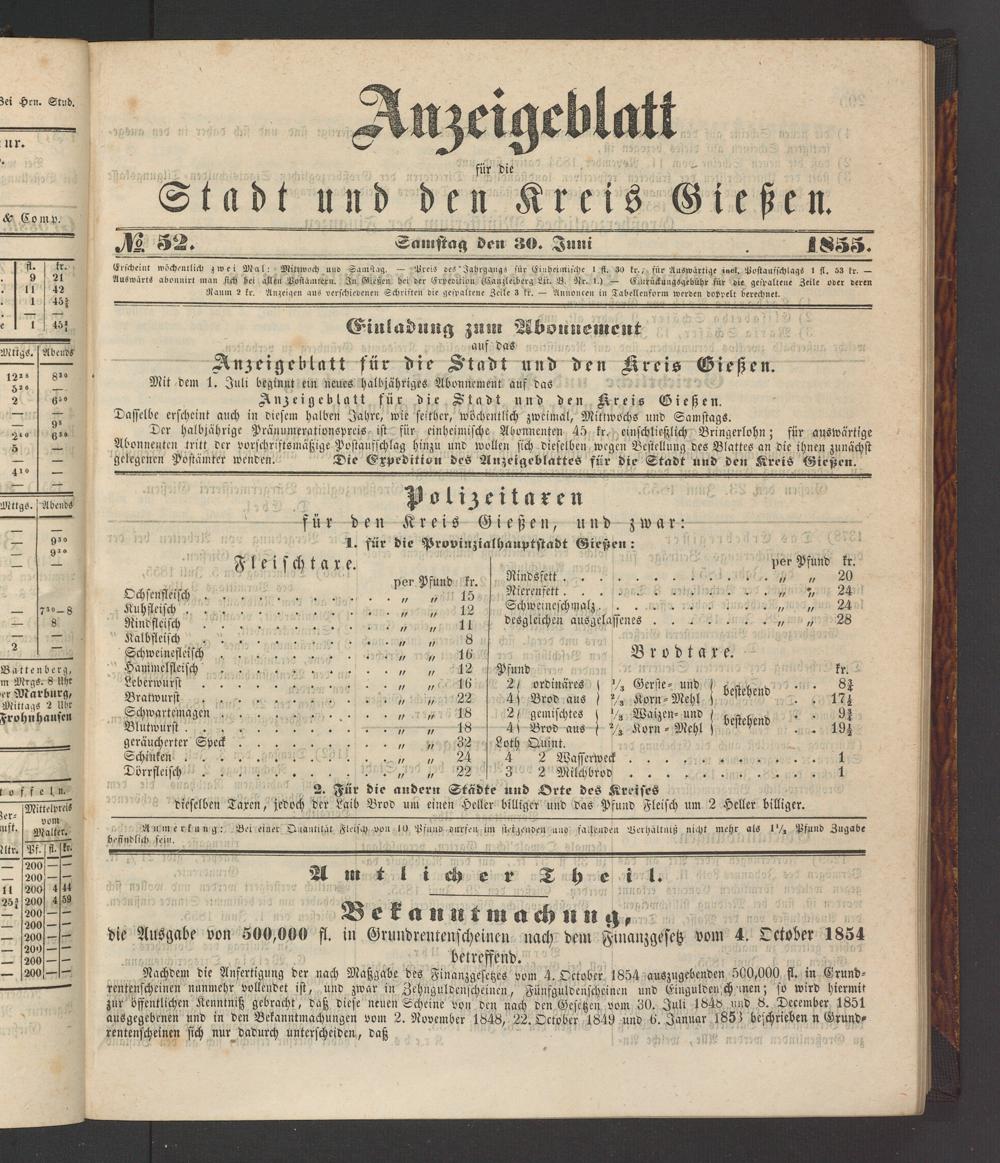 Bei Hrn. Stud.
& Comp.
fl. kr.
9 21
11 42
1 45¾
— —
1 45¾
Mttgs. Abends
12²⁵ 8³⁰
5²⁰ —
2 6³⁰
— —
— 9⁵
2⁴⁰ 6³⁰
5 —
— —
4¹⁰ —
— —
Mttgs. Abends
— —
— 9³⁰
— 9³⁰
— —
— 7³⁰—8
— 8
2 —
Battenberg,
m Mrgs. 8 Uhr
er Marburg,
Mittags 2 Uhr
Frohnhausen
toffeln.
Mittelpreis
vom
Malter.
Pf. fl. kr.
— 200 — —
— 200 — —
11 200 4 44
25¾ 200 4 59
— 200 — —
— 200 — —
— 200 — —
— 200 — —
— 200 — —
— 200 — —
Anzeigeblatt
für die
Stadt und den Kreis Gießen.
№ 52. Samstag den 30. Juni 1855.
Erscheint wöchentlich zwei Mal: Mittwoch und Samstag. — Preis des Jahrgangs für Einheimische 1 fl. 30 kr., für Auswärtige incl. Postaufschlags 1 fl. 53 kr. —
Auswärts abonnirt man sich bei allen Postämtern. In Gießen bei der Expedition (Canzleiberg Lit. B. Nr. 1.) — Einrückungsgebühr für die gespaltene Zeile oder deren
Raum 2 kr. Anzeigen aus verschiedenen Schriften die gespaltene Zeile 3 kr. — Annoncen in Tabellenform werden doppelt berechnet.
Einladung zum Abonnement
auf das
Anzeigeblatt für die Stadt und den Kreis Gießen.
Mit dem 1. Juli beginnt ein neues halbjähriges Abonnement auf das
Anzeigeblatt für die Stadt und den Kreis Gießen.
Dasselbe erscheint auch in diesem halben Jahre, wie seither, wöchentlich zweimal, Mittwochs und Samstags.
Der halbjährige Pränumerationspreis ist für einheimische Abonnenten 45 kr. einschließlich Bringerlohn; für auswärtige
Abonnenten tritt der vorschriftsmäßige Postaufschlag hinzu und wollen sich dieselben wegen Bestellung des Blattes an die ihnen zunächst
gelegenen Postämter wenden. Die Expedition des Anzeigeblattes für die Stadt und den Kreis Gießen.
Polizeitaxen
für den Kreis Gießen, und zwar:
1. für die Provinzialhauptstadt Gießen:
Fleischtaxe.
per Pfund kr.
Ochsenfleisch . . . „ „ 15
Kuhfleisch . . . „ „ 12
Rindfleisch . . . „ „ 11
Kalbfleisch . . . „ „ 8
Schweinefleisch . . . „ „ 16
Hammelfleisch . . . „ „ 12
Leberwurst . . . „ „ 16
Bratwurst . . . „ „ 22
Schwartemagen . . . „ „ 18
Blutwurst . . . „ „ 18
geräucherter Speck . . . „ „ 32
Schinken . . . „ „ 24
Dörrfleisch . . . „ „ 22
per Pfund kr.
Rindsfett . . . „ „ 20
Nierenfett . . . „ „ 24
Schweineschmalz . . . „ „ 24
desgleichen ausgelassenes . . . „ „ 28
Brodtaxe.
Pfund kr.
2 ordinäres ⅓ Gerste- und bestehend . . 8¾
4 Brod aus ⅔ Korn-Mehl . . 17½
2 gemischtes ⅓ Waizen- und bestehend . . 9¾
4 Brod aus ⅔ Korn-Mehl . . 19½
Loth Quint.
4 2 Wasserweck . . . 1
3 2 Milchbrod . . . 1
2. Für die andern Städte und Orte des Kreises
dieselben Taxen, jedoch der Laib Brod um einen Heller billiger und das Pfund Fleisch um 2 Heller billiger.
Anmerkung: Bei einer Quantität Fleisch von 10 Pfund dürfen im steigenden und fallenden Verhältniß nicht mehr als 1½ Pfund Zugabe
befindlich sein.
Amtlicher Theil.
Bekanntmachung,
die Ausgabe von 500,000 fl. in Grundrentenscheinen nach dem Finanzgesetz vom 4. October 1854
betreffend.
Nachdem die Anfertigung der nach Maßgabe des Finanzgesetzes vom 4. October 1854 auszugebenden 500,000 fl. in Grund-
rentenscheinen nunmehr vollendet ist, und zwar in Zehnguldenscheinen, Fünfguldenscheinen und Einguldenscheinen; so wird hiermit
zur öffentlichen Kenntniß gebracht, daß diese neuen Scheine von den nach den Gesetzen vom 30. Juli 1848 und 8. December 1851
ausgegebenen und in den Bekanntmachungen vom 2. November 1848, 22. October 1849 und 6. Januar 1853 beschrieben n Grund-
rentenscheinen sich nur dadurch unterscheiden, daß